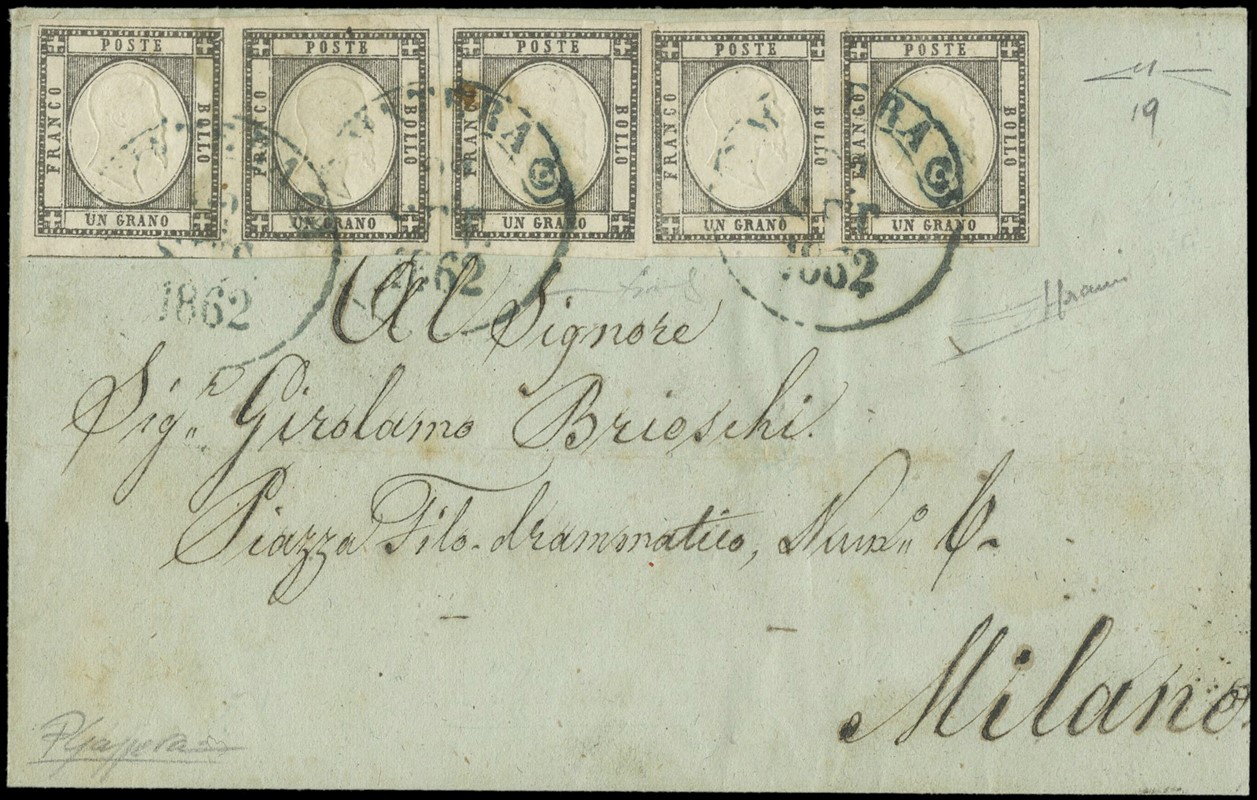 POSTE POSTE POSTE POSTE POSTE
FRANCO BOLLO FRANCO BOLLO FRANCO BOLLO FRANCO BOLLO FRANCO BOLLO
UN GRANO UN GRANO UN GRANO UN GRANO UN GRANO
1862 1862 1862
19
Al Signore
Sig.n Girolamo Brioschi.
Piazza Filo-drammatico, Num.o 6-
Milano